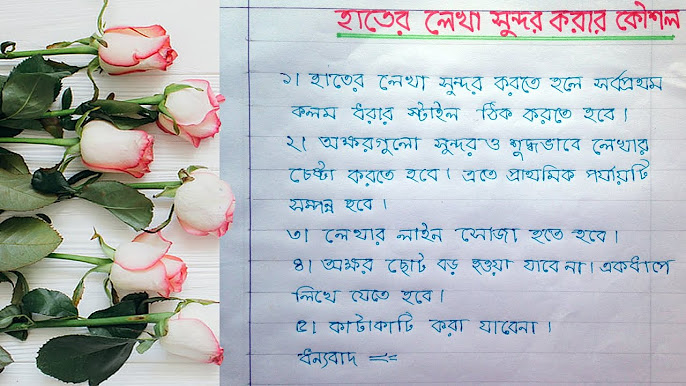 হাতের লেখা সুন্দর করার কৌশল
১। হাতের লেখা সুন্দর করতে হলে সর্বপ্রথম
কলম ধরার স্টাইল ঠিক করতে হবে।
২। অক্ষরগুলো সুন্দর ও শুদ্ধভাবে লেখার
চেষ্টা করতে হবে। এতে প্রাথমিক পর্যায়টি
সম্পন্ন হবে।
৩। লেখার লাইন সোজা হতে হবে।
৪। অক্ষর ছোট বড় হওয়া যাবে না। একধাপে
লিখে যেতে হবে।
৫। কাটাকাটি করা যাবেনা।
ধন্যবাদ